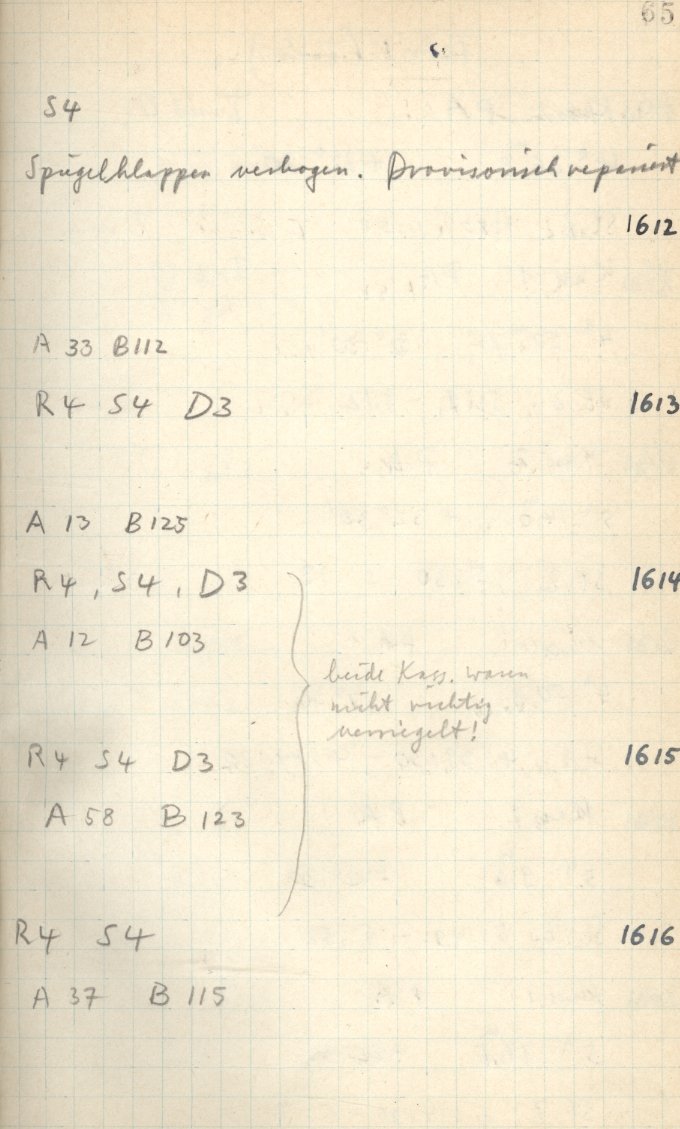 65
S4
Spiegelklappen verbogen. Provisorisch repariert
1612
A 33 B112
R4 S4 D3 1613
A 13 B125
R4, S4, D3 1614
A 12 B 103
beide Kass. waren
nicht richtig
verriegelt!
R4 S4 D3 1615
A 58 B 123
R4 S4 1616
A 37 B 115